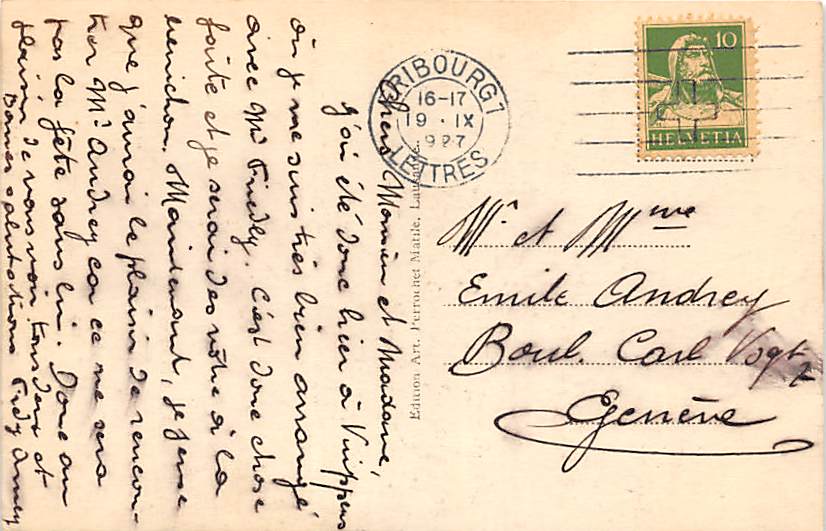 Chers Monsieur et Madame,
J'ai été donc hier à Vuippens
où je me suis très bien arrangé
avec Mr Friedly. C'est donc chose
faite et je serai des vôtre à la
benichon. Maintenant, je pense
que j'aurai le plaisir de rencon-
trer Mr Andrey car ce ne sera
pas la fête sans lui. Donc au
plaisir de vous voir tous deux et
Bonnes salutations
FRIBOURG 1
16-17
19 · IX
1927
LETTRES
10
HELVETIA
Edition Art. Perrochet Matile, Lausanne.
Mr et Mme
Emile Andrey
Boul. Carl Vogt 2
Genève